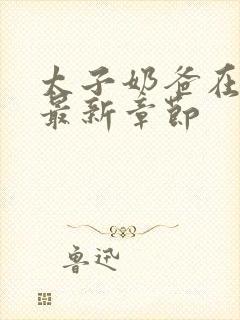 太子奶爸在
最新章节
鲁迅